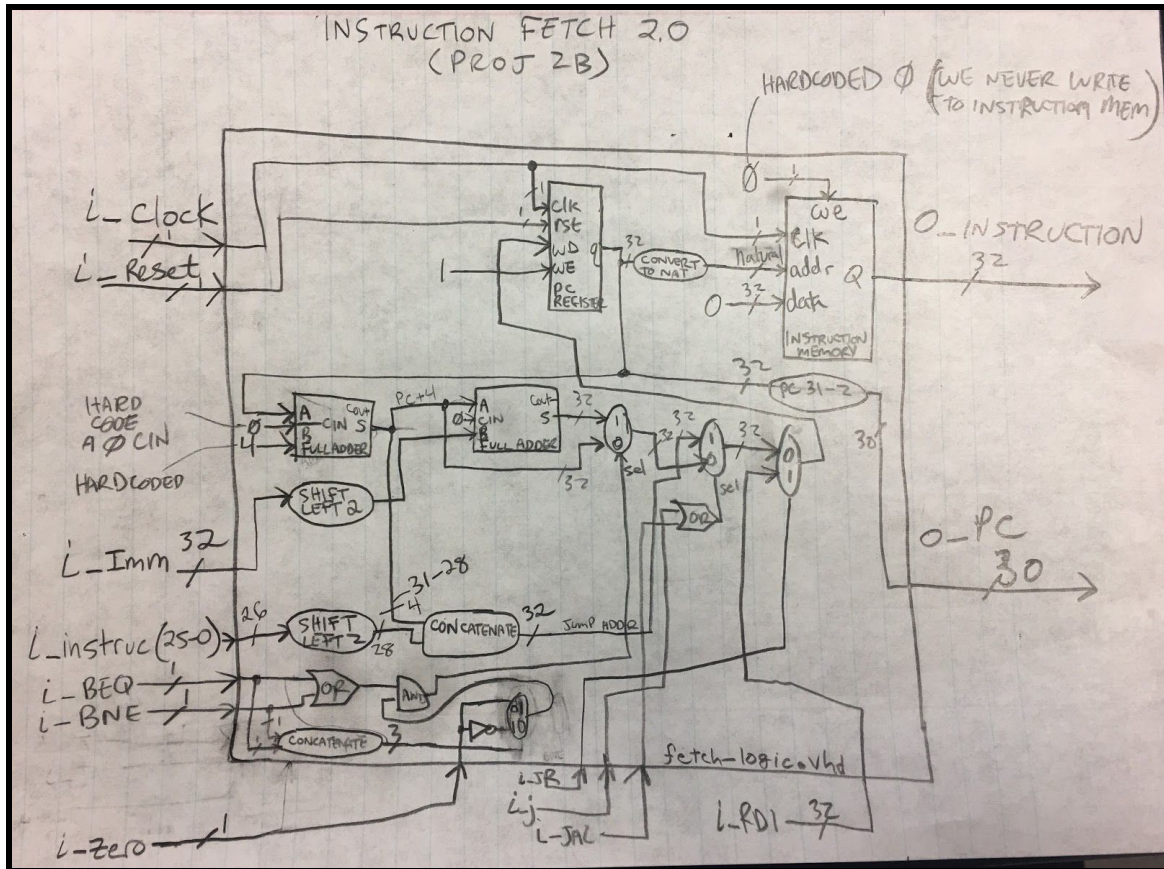 INSTRUCTION FETCH 2.0
(PROJ 2B)
HARDCODED 0 (WE NEVER WRITE
TO INSTRUCTION MEM)
0 1
i_Clock
1
i_Reset
1
1
1
clk
rst
WD Q
WE
PC
REGISTER
1
32
CONVERT
TO NAT
we
1
clk
Natural
addr Q
0 32
data
INSTRUCTION
MEMORY
O_INSTRUCTION
32
32
PC 31-2
30
HARD
CODE
A 0 CIN
HARDCODED
0
4
A Cout
CIN S
B
FULL ADDER
PC+4
0
A Cout
CIN S
B
FULL ADDER
32
32
1
0
sel
32
32
1
0
sel
32
0
1
OR
SHIFT
LEFT 2
i_Imm 32
O_PC
30
31-28
4
i_instruc(25-0)
26
SHIFT
LEFT 2
28
CONCATENATE
32
JUMP ADDR
i_BEQ 1
i_BNE 1
OR
AND
01
10
CONCATENATE 3
fetch-logic.vhd
i_JR
i_j
i_JAL
i_RD1 32
i_Zero 1